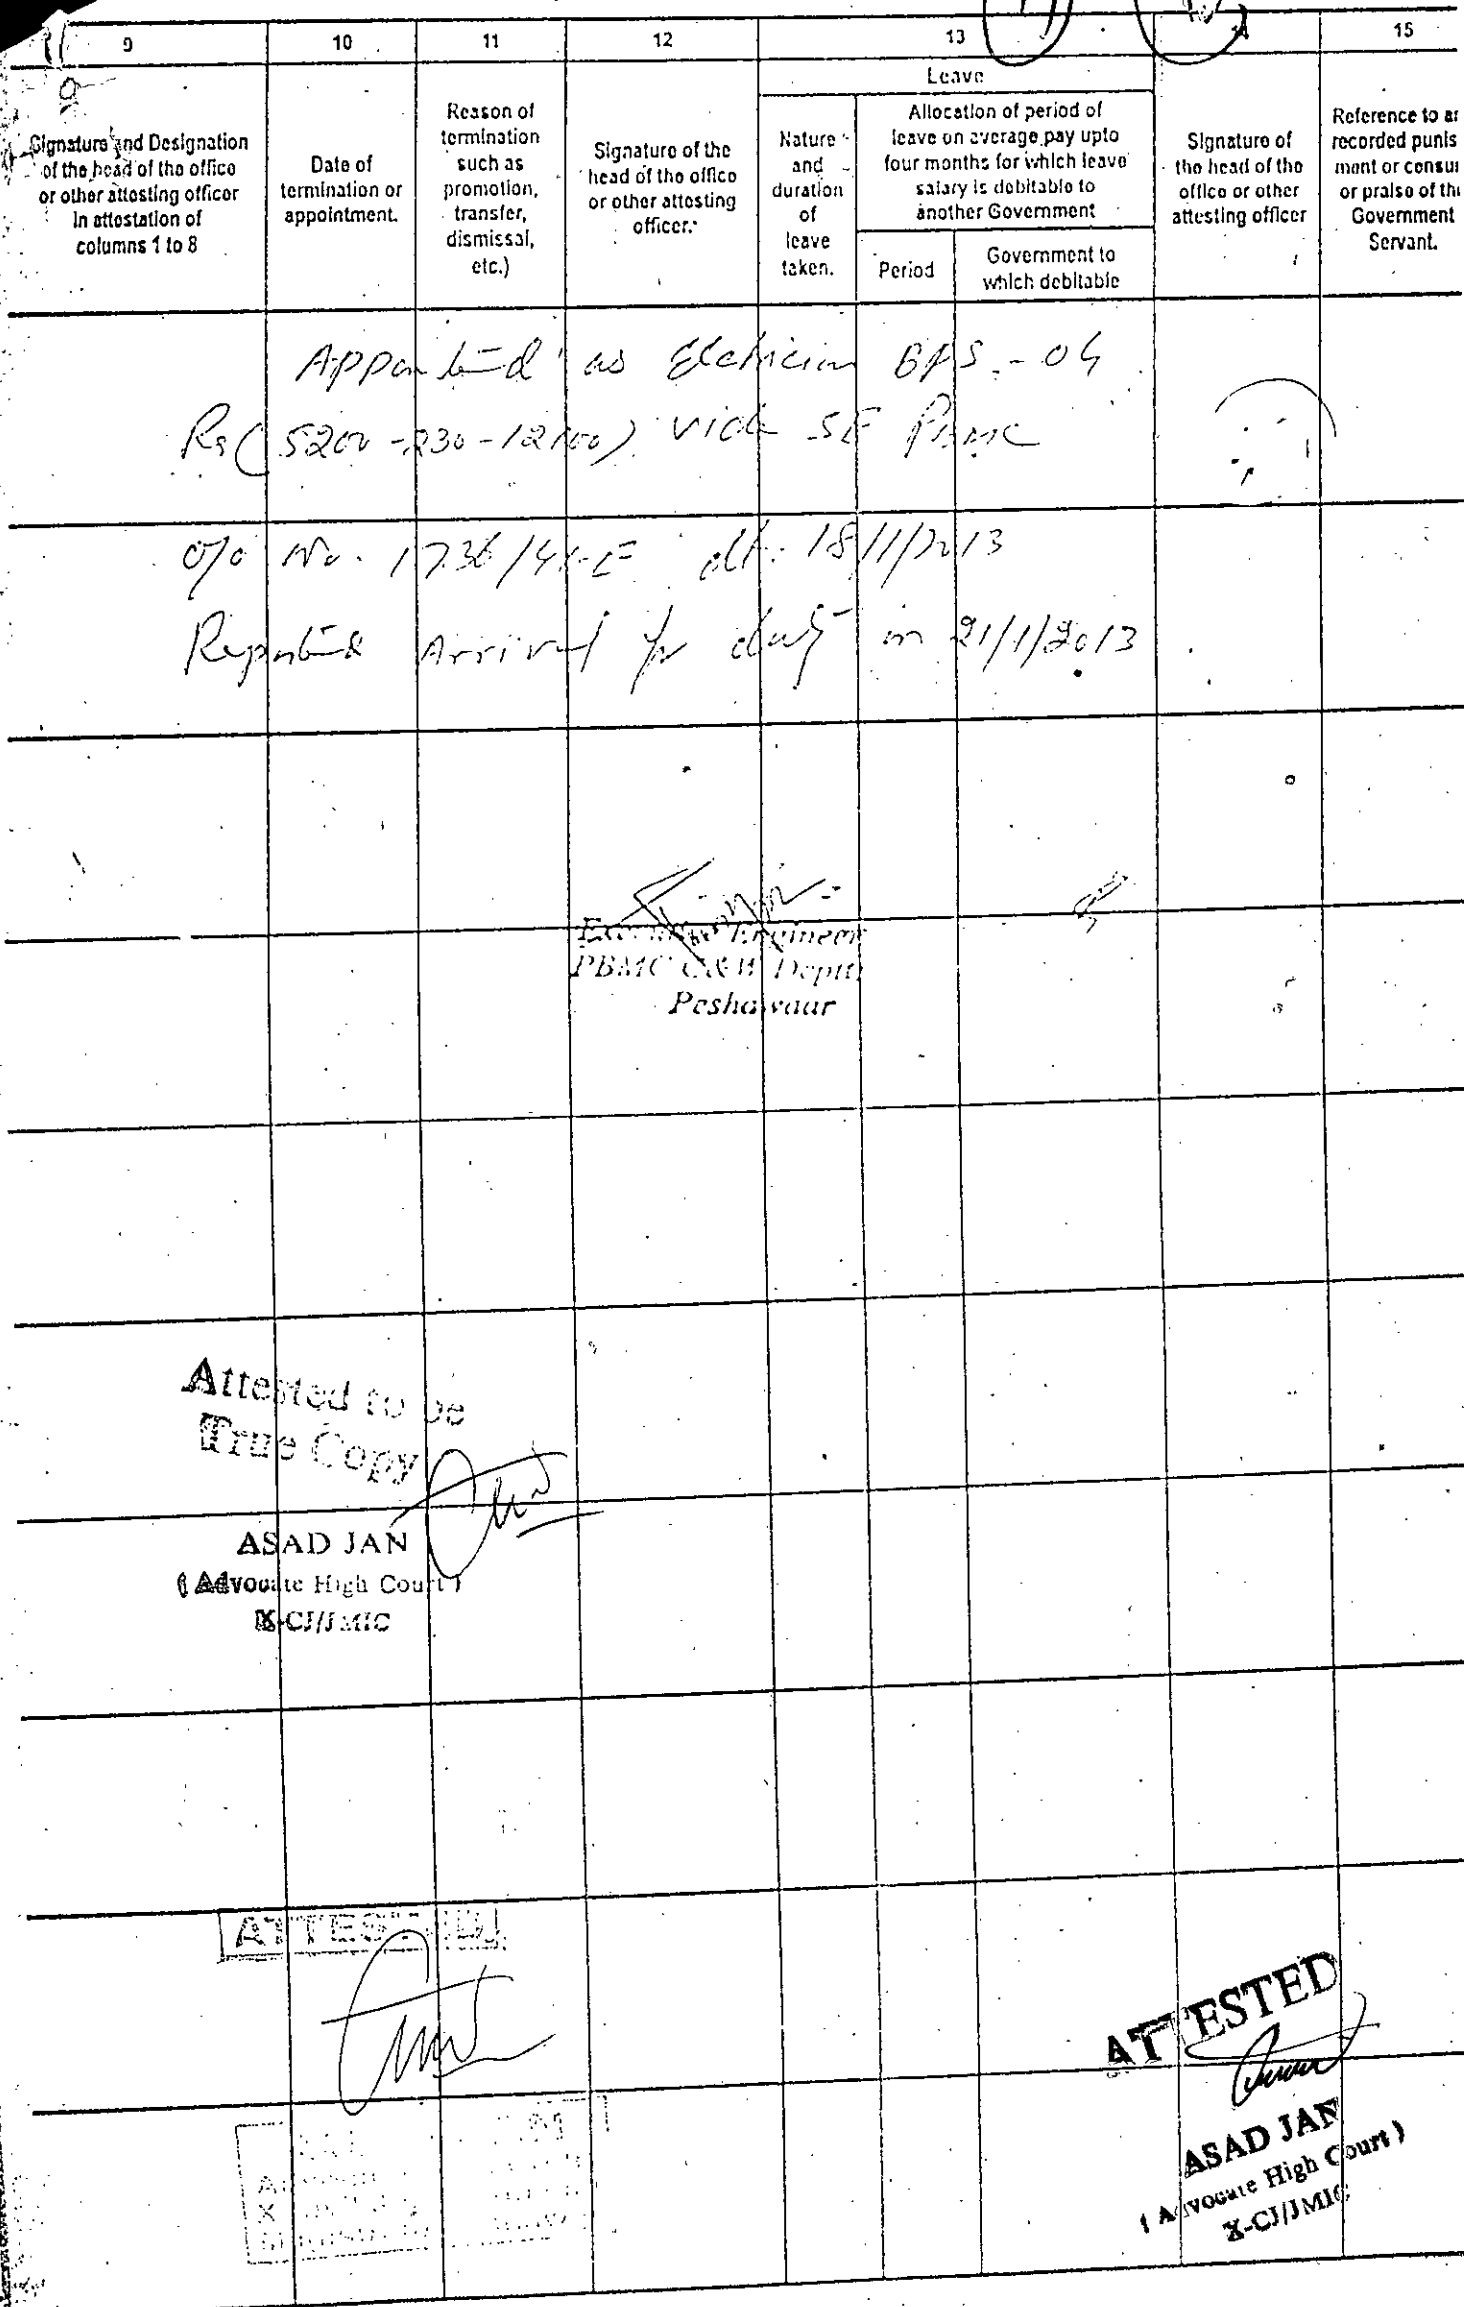 9 10 11 12 13 14 15
Leave
Signature and Designation
of the head of the office
or other attesting officer
in attestation of
columns 1 to 8
Date of
termination or
appointment.
Reason of
termination
such as
promotion,
transfer,
dismissal,
etc.)
Signature of the
head of the office
or other attesting
officer.
Nature
and
duration
of
leave
taken.
Allocation of period of
leave on average pay upto
four months for which leave
salary is debitable to
another Government
Period
Government to
which debitable
Signature of
the head of the
office or other
attesting officer
Reference to
recorded punis
ment or
or praise of
Government
Servant.
Appointed as Electrician BPS-04
Rs (5200-230-12100) vide SE PBMC
O/o No. 1736/41-E dt: 18/1/2013
Reported Arrival for duty on 21/1/2013
Executive Engineer
PBMC C&W Deptt
Peshawaar
Attested to be
True Copy
ASAD JAN
(Advocate High Court)
X-CJ/JMIC
ATTESTED
ATTESTED
ASAD JAN
(Advocate High Court)
X-CJ/JMIC